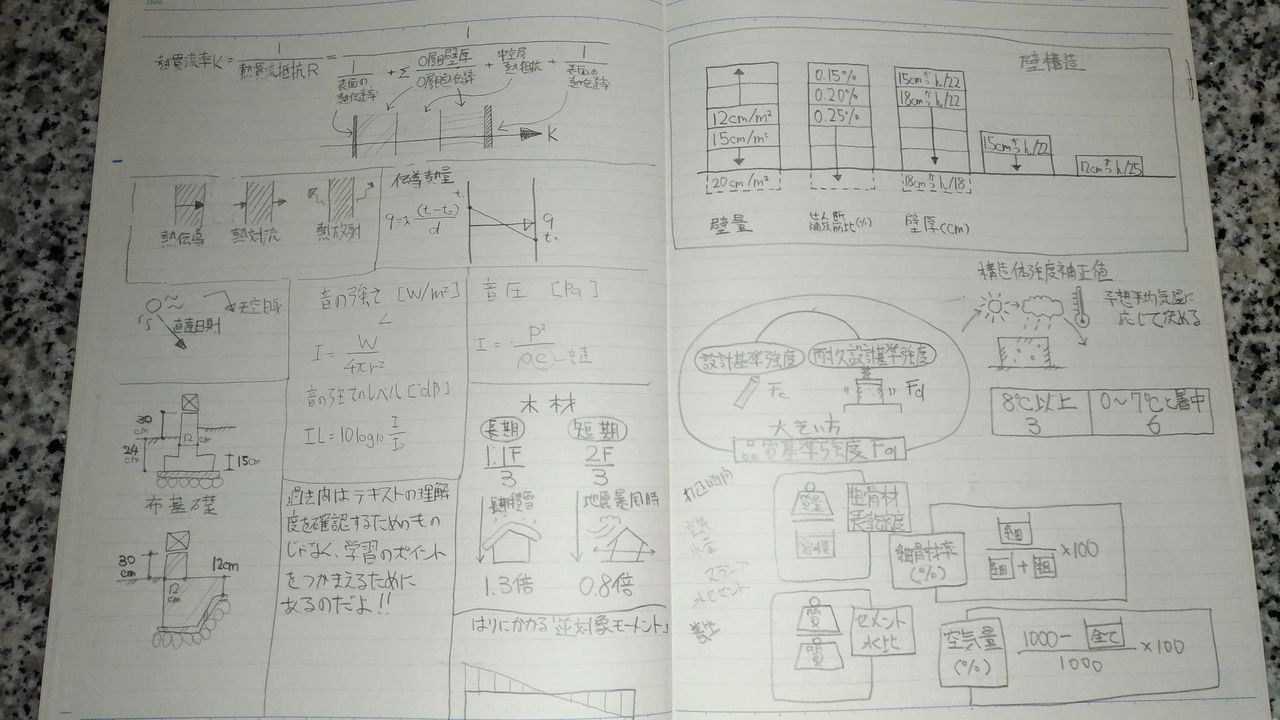 熱貫流率K = 1 / 熱貫流抵抗R = 1 / (1/表面の熱伝達率 + Σ 0層目壁厚/0層目熱伝導率 + 中空層熱抵抗 + 1/表面の熱伝達率)
K
熱伝導
熱対流
熱放射
伝導熱量
d
q
天空日射
直達日射
音の強さ [W/m²]
I = W/4πr²
音の強さのレベル [dB]
IL = 10log10 I/I₀
音圧 [Pa]
I = P²/ρC
音速
30
24cm
12cm
15cm
布基礎
30cm
12cm
12cm
過去問はテキストの理解
度を確認するためのもの
じゃなく、学習のポイント
をつかまえるために
あるのだよ!!
木材
長期
短期
1.1F/3
2F/3
長期積雪
地震暴風時
1.3倍
0.8倍
はりにかかる「逆対象モーメント」
壁構造
12cm/m²
15cm/m²
20cm/m²
壁量
0.15%
0.20%
0.25%
15cmかつh/22
18cmかつh/22
18cmかつh/18
15cmかつh/22
12cmかつh/25
壁厚(cm)
構造体強度補正値
予想平均気温に
応じて決める
8℃以上
0~7℃と暑中
3
6
設計基準強度
耐久設計基準強度
Fc
Fd
大きい方
品質基準強度Fq
質量
容積
粗骨材
細骨材率
(%)
細
細 + 粗
×100
スランプ
質
質
セメント
水比
空気量
(%)
1000 - 全て
1000
×100